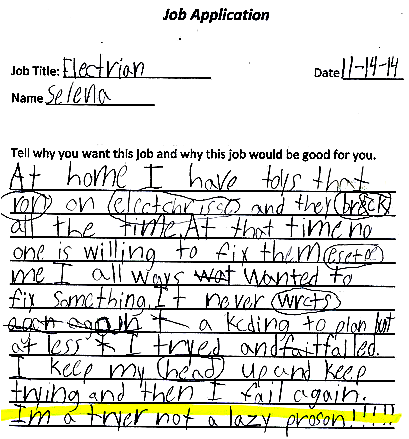 Job Application
Job Title: Electrian
Date 11-14-14
Name Selena
Tell why you want this job and why this job would be good for you.
At home I have toys that
ron on electchrisse and they brack
all the time. At that time no
one is willing to fix them eseto
me I all ways wat wanted to
fix something. It never wrcts
a kcding to plan but
at less I tryed and faitfalled.
I keep my head up and keep
trying and then I fail again.
Im a tryer not a lazy proson!!!!!